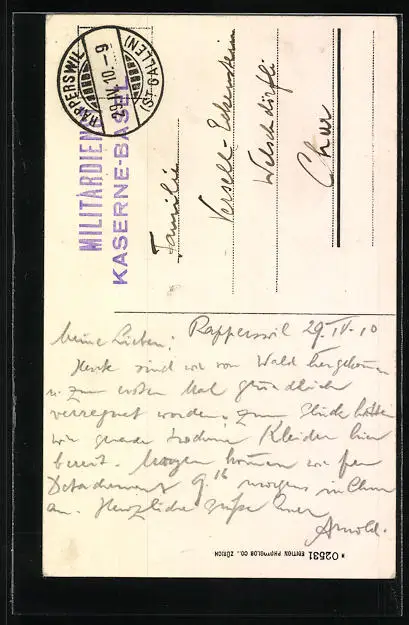 RAPPERSWIL
29.IV.10.–9
(ST. GALLEN)
MILITÄRDIEN
KASERNE-BASEL
Familie
Versell-
Welschdörfli
Chur
Rapperswil 29.IV.10
Meine Lieben!
Heute sind wir von Wald hergekommen
u. zum ersten Mal gründlich
verregnet worden; zum Glück hatten
wir gerade trockene Kleider hier
bereit. Morgen kommen wir per
Detachement 9.16 morgens in Chur
an. Herzliche Grüsse Euer
Arnold.
N 02531 EDITION PHOTOGLOB CO., ZÜRICH